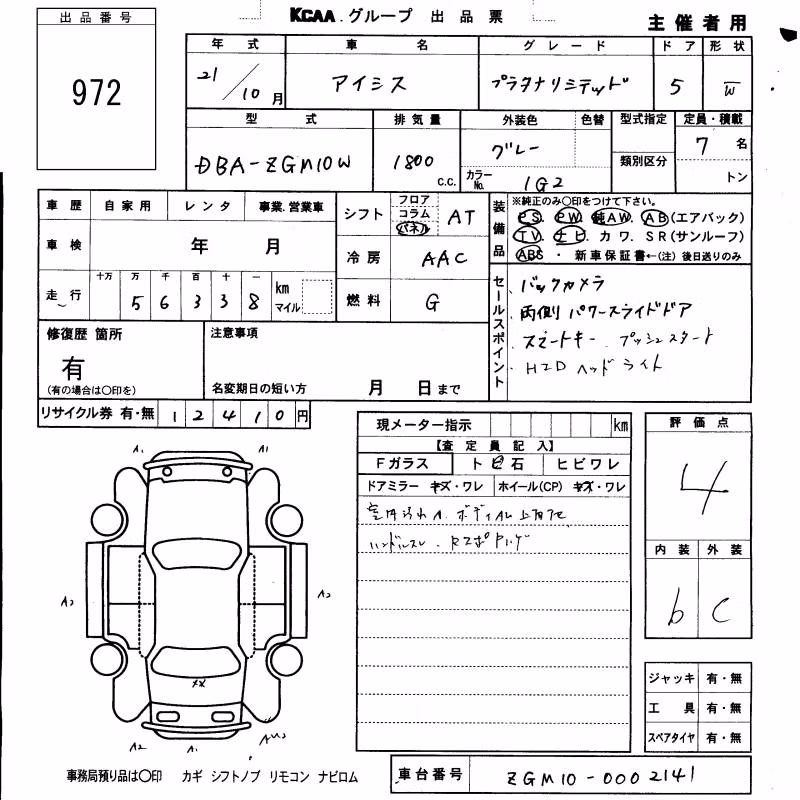 出品番号
972
KCAA.グループ 出品票
主催者用
年式 車名 グレード ドア 形状
21/10月 アイシス プラタナリミテッド 5 W
型式 排気量 外装色 色替 型式指定 定員・積載
DBA-ZGM10W 1800c.c. グレー 7名
カラーNo. 1G2 類別区分 トン
車歴 自家用 レンタ 事業.営業車
シフト フロア コラム パネル AT
車検 年 月
冷房 AAC
走行 十万 万 千 百 十 一 km マイル
5 6 3 3 8
燃料 G
装備品 ※純正のみ〇印をつけて下さい。
PS. PW. 純AW. AB(エアバック)
TV. ナビ. カワ. SR(サンルーフ)
ABS ・ 新車保証書←(注)後日送りのみ
セールスポイント
バックカメラ
両側パワースライドドア
スマートキー. プッシュスタート
HIDヘッドライト
修復歴 箇所
有
(有の場合は〇印を)
注意事項
名変期日の短い方 月 日まで
リサイクル券 有・無 12410円
現メーター指示 km
【査定員記入】
Fガラス トビ石 ヒビワレ
ドアミラー キズ・ワレ ホイール(CP) キズ・ワレ
ハンドルスレ.
評価点
4
内装 外装
b C
A1 A1
A2 A2
XX
A2 A1
ジャッキ 有・無
工具 有・無
スペアタイヤ 有・無
事務局預り品は〇印 カギ シフトノブ リモコン ナビロム
車台番号 ZGM10-0002141